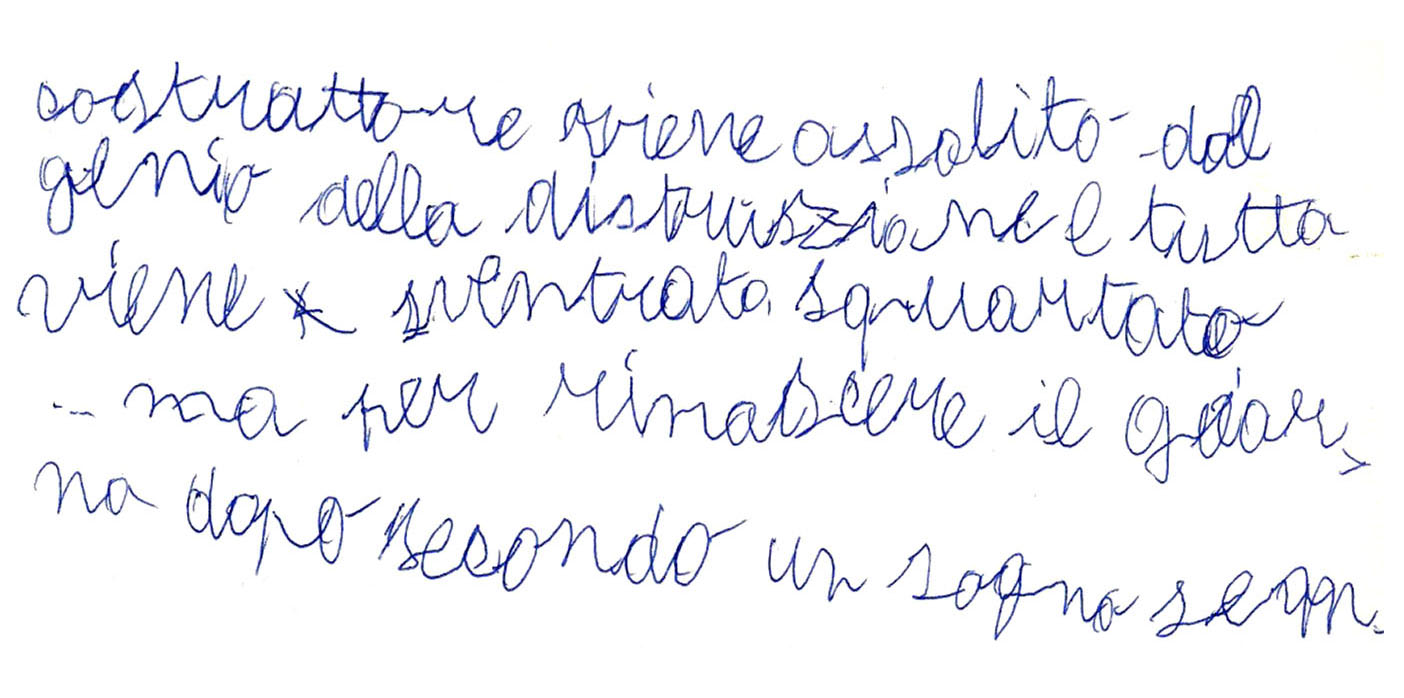 costruttore viene assalito dal
genio della distruzione e tutto
viene sventrato squartato
... ma per rinascere il gior
no dopo secondo un sogno sem